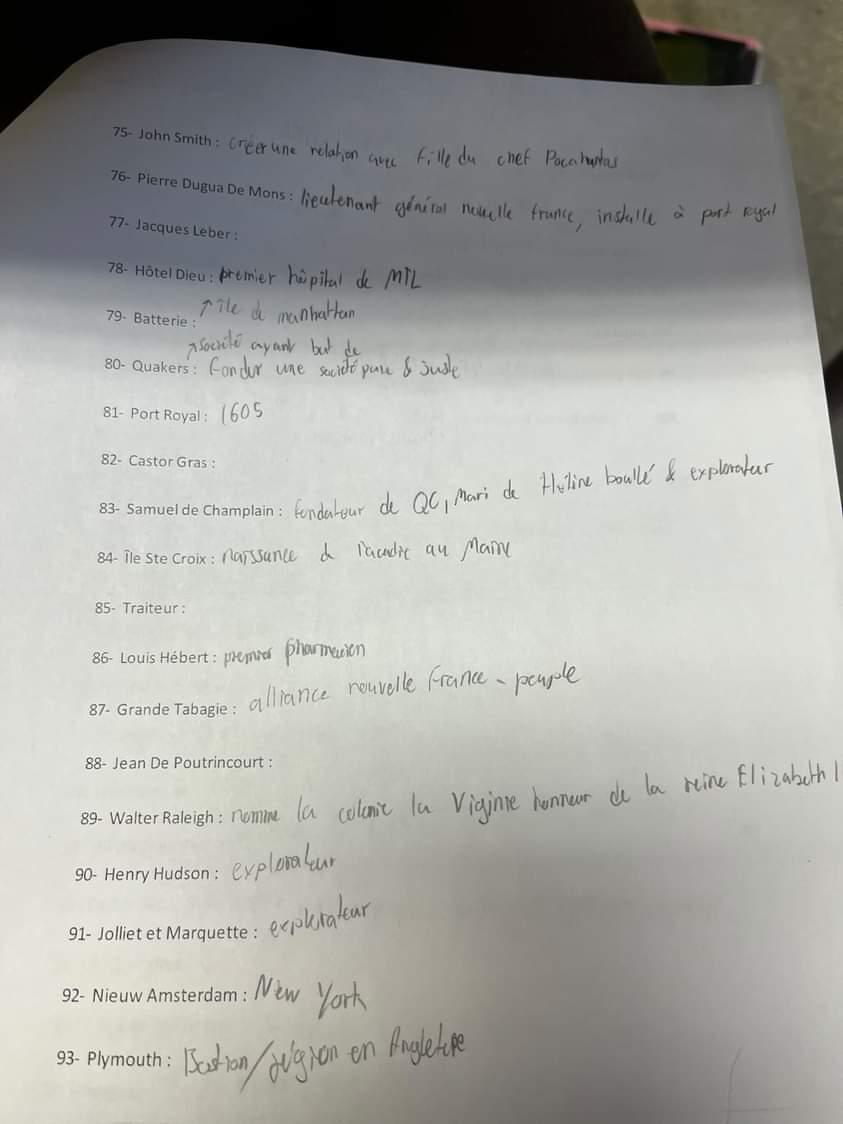 75- John Smith : créer une relation avec fille du chef Pocahuntas
76- Pierre Dugua De Mons : lieutenant général nouvelle france, installe à port royal
77- Jacques Leber :
78- Hôtel Dieu : premier hôpital de MTL
79- Batterie : ↗ île de manhattan
↗ société ayant but de
80- Quakers : fonder une société pure & juste
81- Port Royal : 1605
82- Castor Gras :
83- Samuel de Champlain : fondateur de QC, Mari de Héline boullé & explorateur
84- Île Ste Croix : naissance de l'acadie au Maine
85- Traiteur :
86- Louis Hébert : premier pharmacien
87- Grande Tabagie : alliance nouvelle France - peuple
88- Jean De Poutrincourt :
89- Walter Raleigh : nomme la colonie la Viginie honneur de la reine Elizabeth I
90- Henry Hudson : explorateur
91- Jolliet et Marquette : explorateur
92- Nieuw Amsterdam : New York
93- Plymouth : en Angleterre